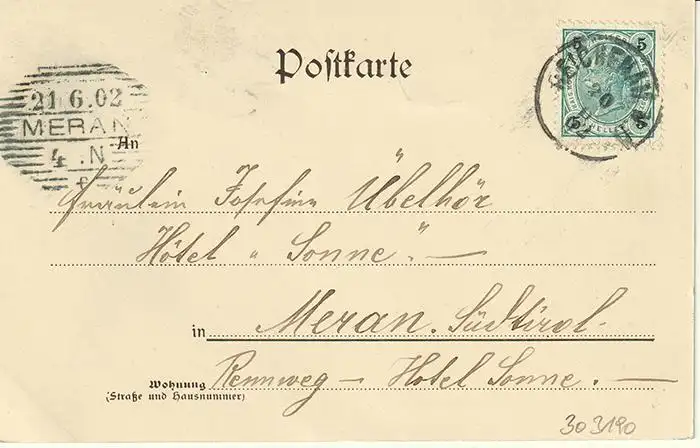 Postkarte
5 5
21.6.02
MERAN
4 .N
An
Fräulein Josefine Übelhör
Hôtel „Sonne". —
in Meran. Südtirol-
Wohnung Rennweg — Hotel Sonne. —
(Straße und Hausnummer)
303190